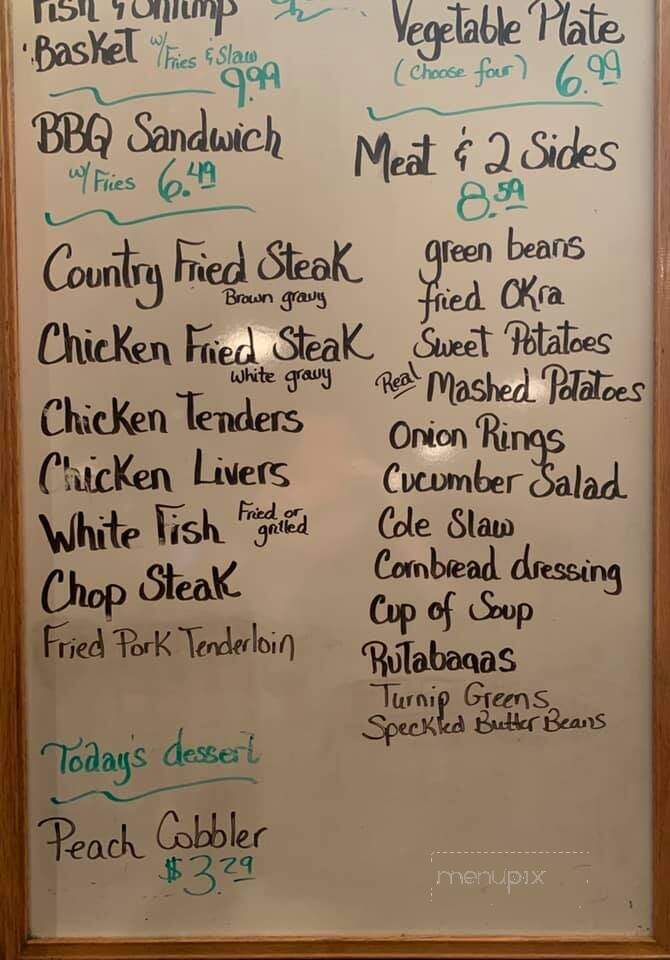 Fish & Shrimp
Basket w/ Fries & Slaw
9.99
BBQ Sandwich
w/ Fries 6.49
Country Fried Steak
Brown gravy
Chicken Fried Steak
White gravy
Chicken Tenders
Chicken Livers
White Fish Fried or
grilled
Chop Steak
Fried Pork Tenderloin
Today's dessert
Peach Cobbler
$3.29
Vegetable Plate
(Choose four) 6.99
Meat & 2 Sides
8.59
green beans
fried Okra
Sweet Potatoes
Real Mashed Potatoes
Onion Rings
Cucumber Salad
Cole Slaw
Cornbread dressing
Cup of Soup
Rutabagas
Turnip Greens
Speckled Butter Beans
menupix